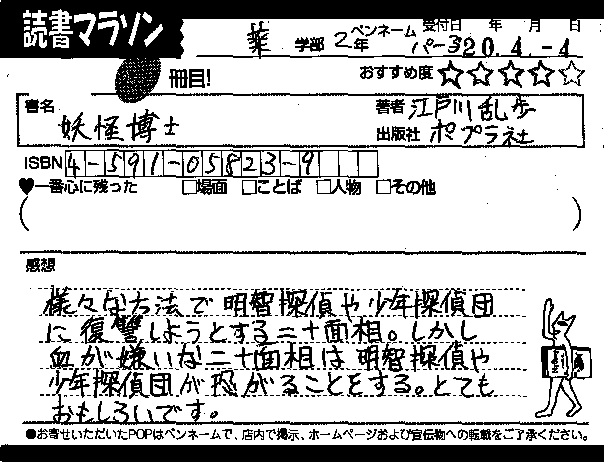 読書マラソン
薬 学部 2年 ペンネーム パーヨ 受付日 年 月 日
20.4.-4
冊目! おすすめ度 ☆☆☆☆☆
書名 妖怪博士 著者 江戸川乱歩
出版社 ポプラ社
ISBN 4-591-05823-9
♥一番心に残った □場面 □ことば □人物 □その他
( )
感想
様々な方法で明智探偵や少年探偵団
に復讐しようとする二十面相。しかし
血が嫌いな二十面相は明智探偵や
少年探偵団が恐がることをする。とても
おもしろいです。
●お寄せいただいたPOPはペンネームで、店内で掲示、ホームページおよび宣伝物への転載をご了承ください。